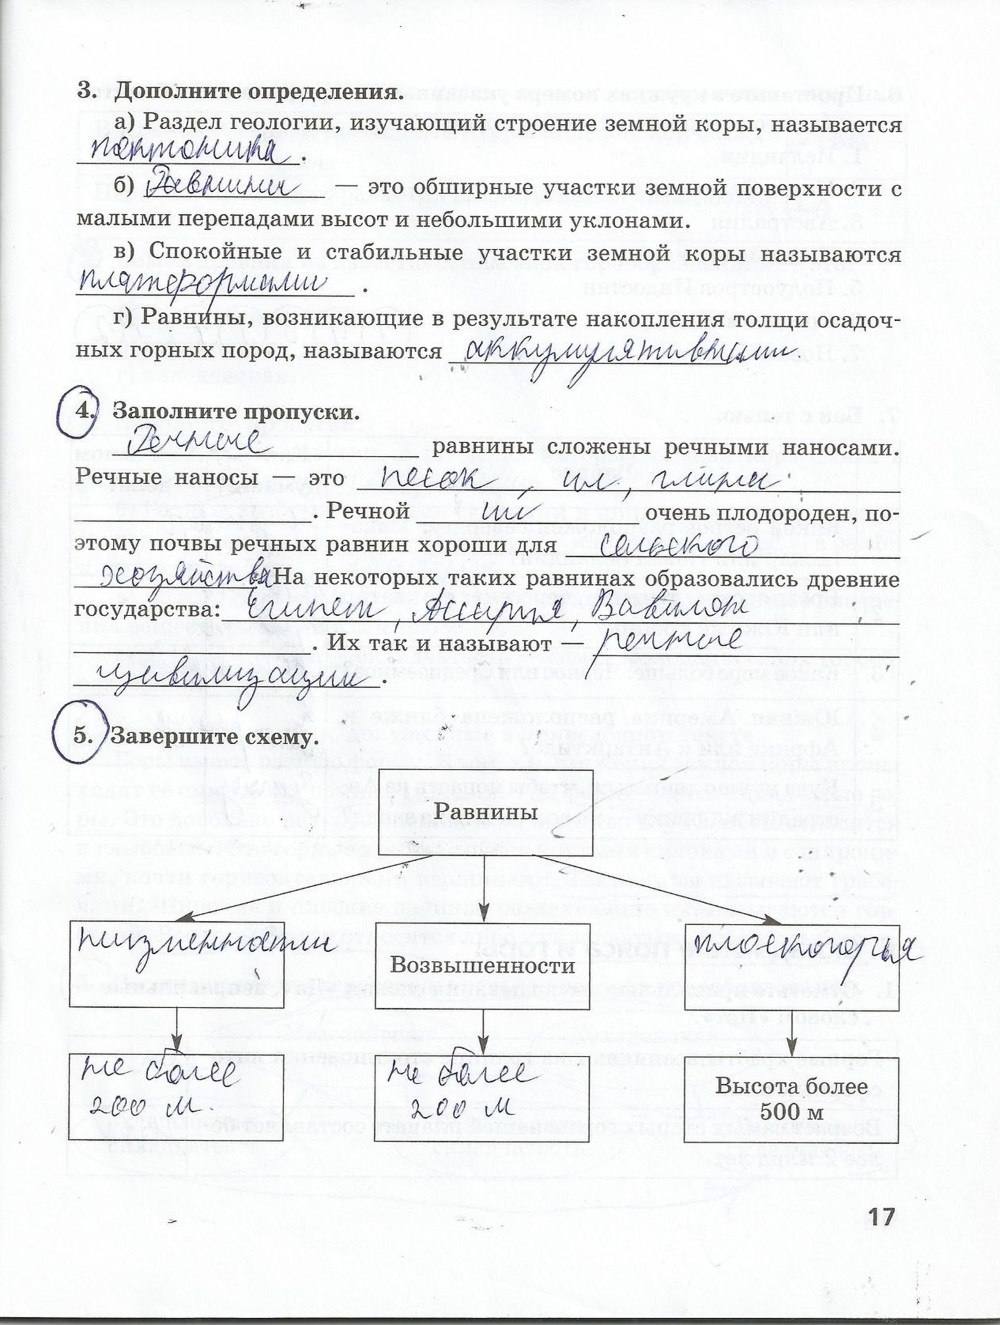 3. Дополните определения.
а) Раздел геологии, изучающий строение земной коры, называется
тектоника.
б) Равнины — это обширные участки земной поверхности с
малыми перепадами высот и небольшими уклонами.
в) Спокойные и стабильные участки земной коры называются
платформами.
г) Равнины, возникающие в результате накопления толщи осадоч-
ных горных пород, называются аккумулятивными.
4. Заполните пропуски.
Речные равнины сложены речными наносами.
Речные наносы — это песок, ил, глина
. Речной ил очень плодороден, по-
этому почвы речных равнин хороши для сельского
хозяйства. На некоторых таких равнинах образовались древние
государства: Египет, Ассирия, Вавилон
. Их так и называют — речные
цивилизации.
5. Завершите схему.
Равнины
низменности Возвышенности плоскогорья
не более не более Высота более
200 м. 200 м 500 м
17